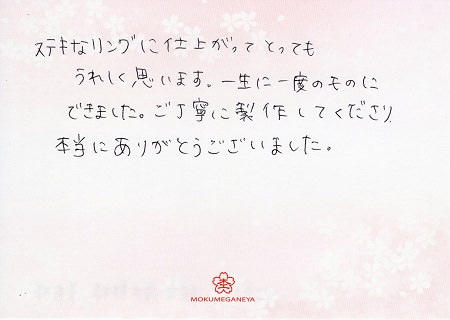 ステキなリングに仕上がってとっても
うれしく思います。一生に一度のものに
できました。ご丁寧に製作してくださり
本当にありがとうございました。
MOKUMEGANEYA